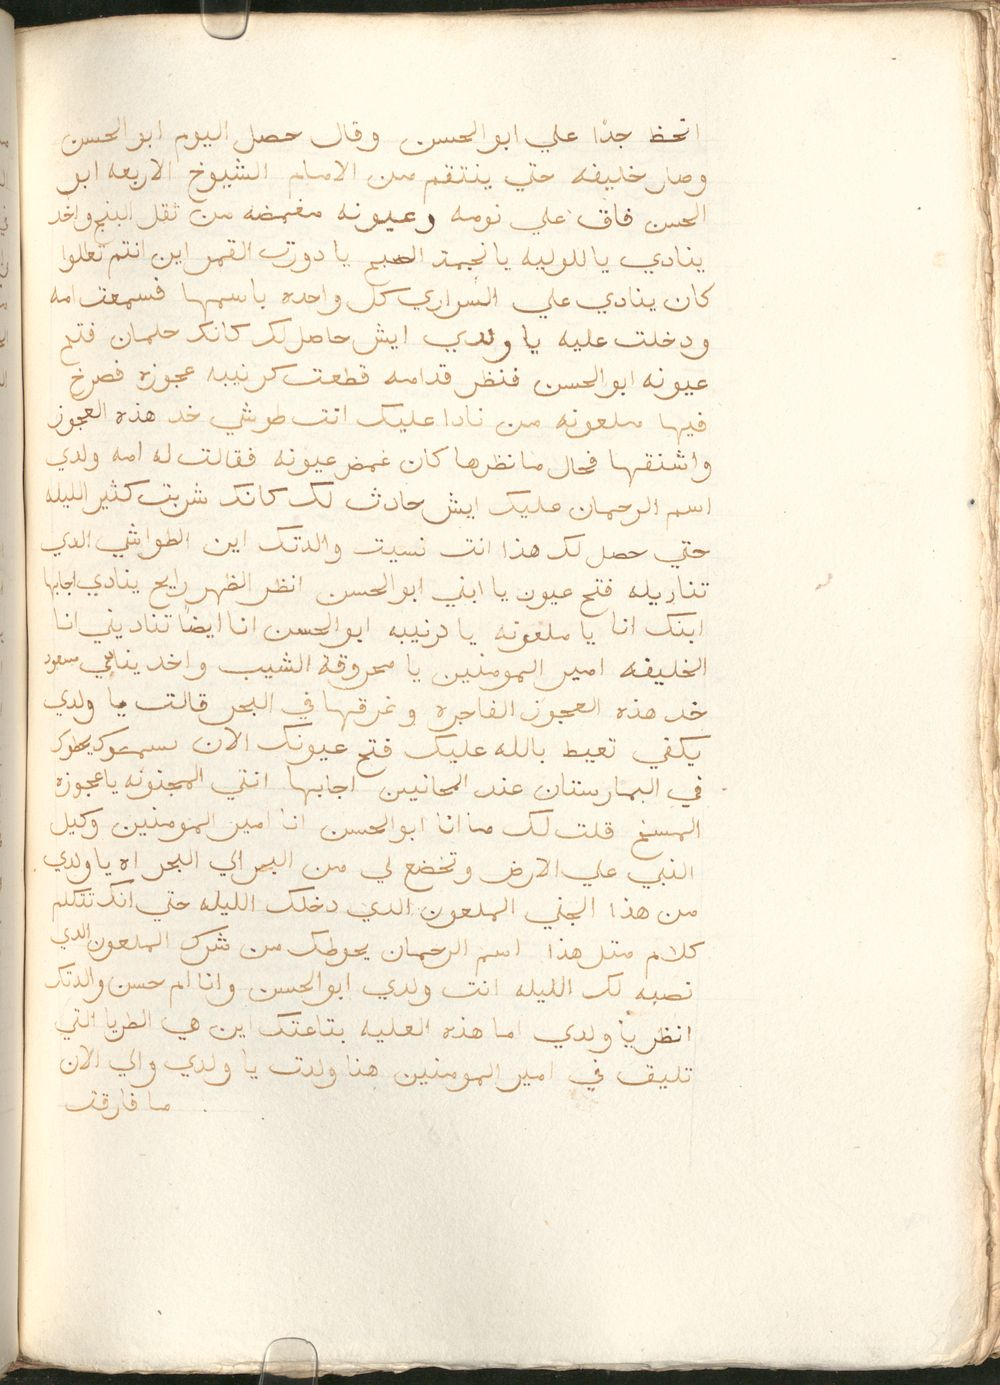 انحظ جدًا علي ابو الحسن وقال حصل اليوم ابو الحسن
وصار خليفه حتي ينتقم من الامام الشيوخ الاربعه ابو
الحسن فاق علي نومه وعيونه مغمضه من ثقل البنج واخد
ينادي يا للوليه يا نجمة الصبح يا دورت القمر اين انتم تعالوا
كان ينادي علي السراري كل واحده باسمها فسمعت امه
ودخلت عليه يا ولدي ايش حاصل لك كانك حلمان فتح
عيونه ابو الحسن فنظر قدامه قطعت كرنيبه عجوزه فصرخ
فيها ملعونه من نادا عليك انت طوشي خد هذه العجوز
واشنقها فحال ما نظرها كان غمض عيونه فقالت له امه ولدي
اسم الرحمان عليك ايش حادث لك كانك شربت كثير الليله
حتي حصل لك هذا انت نسيت والدتك اين الطواشي الدي
تناديله فتح عيون يا ابني ابو الحسن انظر الظهر رايح ينادي اجابها
ابنك انا يا ملعونه يا كرنيبه ابو الحسن انا ايضًا تناديني انا
الخليفه امير المومنين يا محروقة الشيب واخد ينادي مسعود
خد هذه العجوز الفاجره وغرقها في البحر قالت يا ولدي
يكفي تعيط بالله عليك فتح عيونك الان يسمعوك يحطوك
في البمارستان عند المجانين اجابها انتي المجنونه يا عجوزة
المسخ قلت لك ما انا ابو الحسن انا امير المومنين وكيل
النبي علي الارض وتخضع لي من البر الي البحر اه يا ولدي
من هذا الجني الملعون الدي دخلك الليله حتي انك تتكلم
كلام متل هذا اسم الرحمان يحوطك من شرك الملعون الدي
نصبه لك الليله انت ولدي ابو الحسن وانا ام حسن والدتك
انظر يا ولدي اما هذه العليه بتاعتك اين هي الطريا التي
تليق في امير المومنين هنا ولدت يا ولدي والي الان
ما فارقت